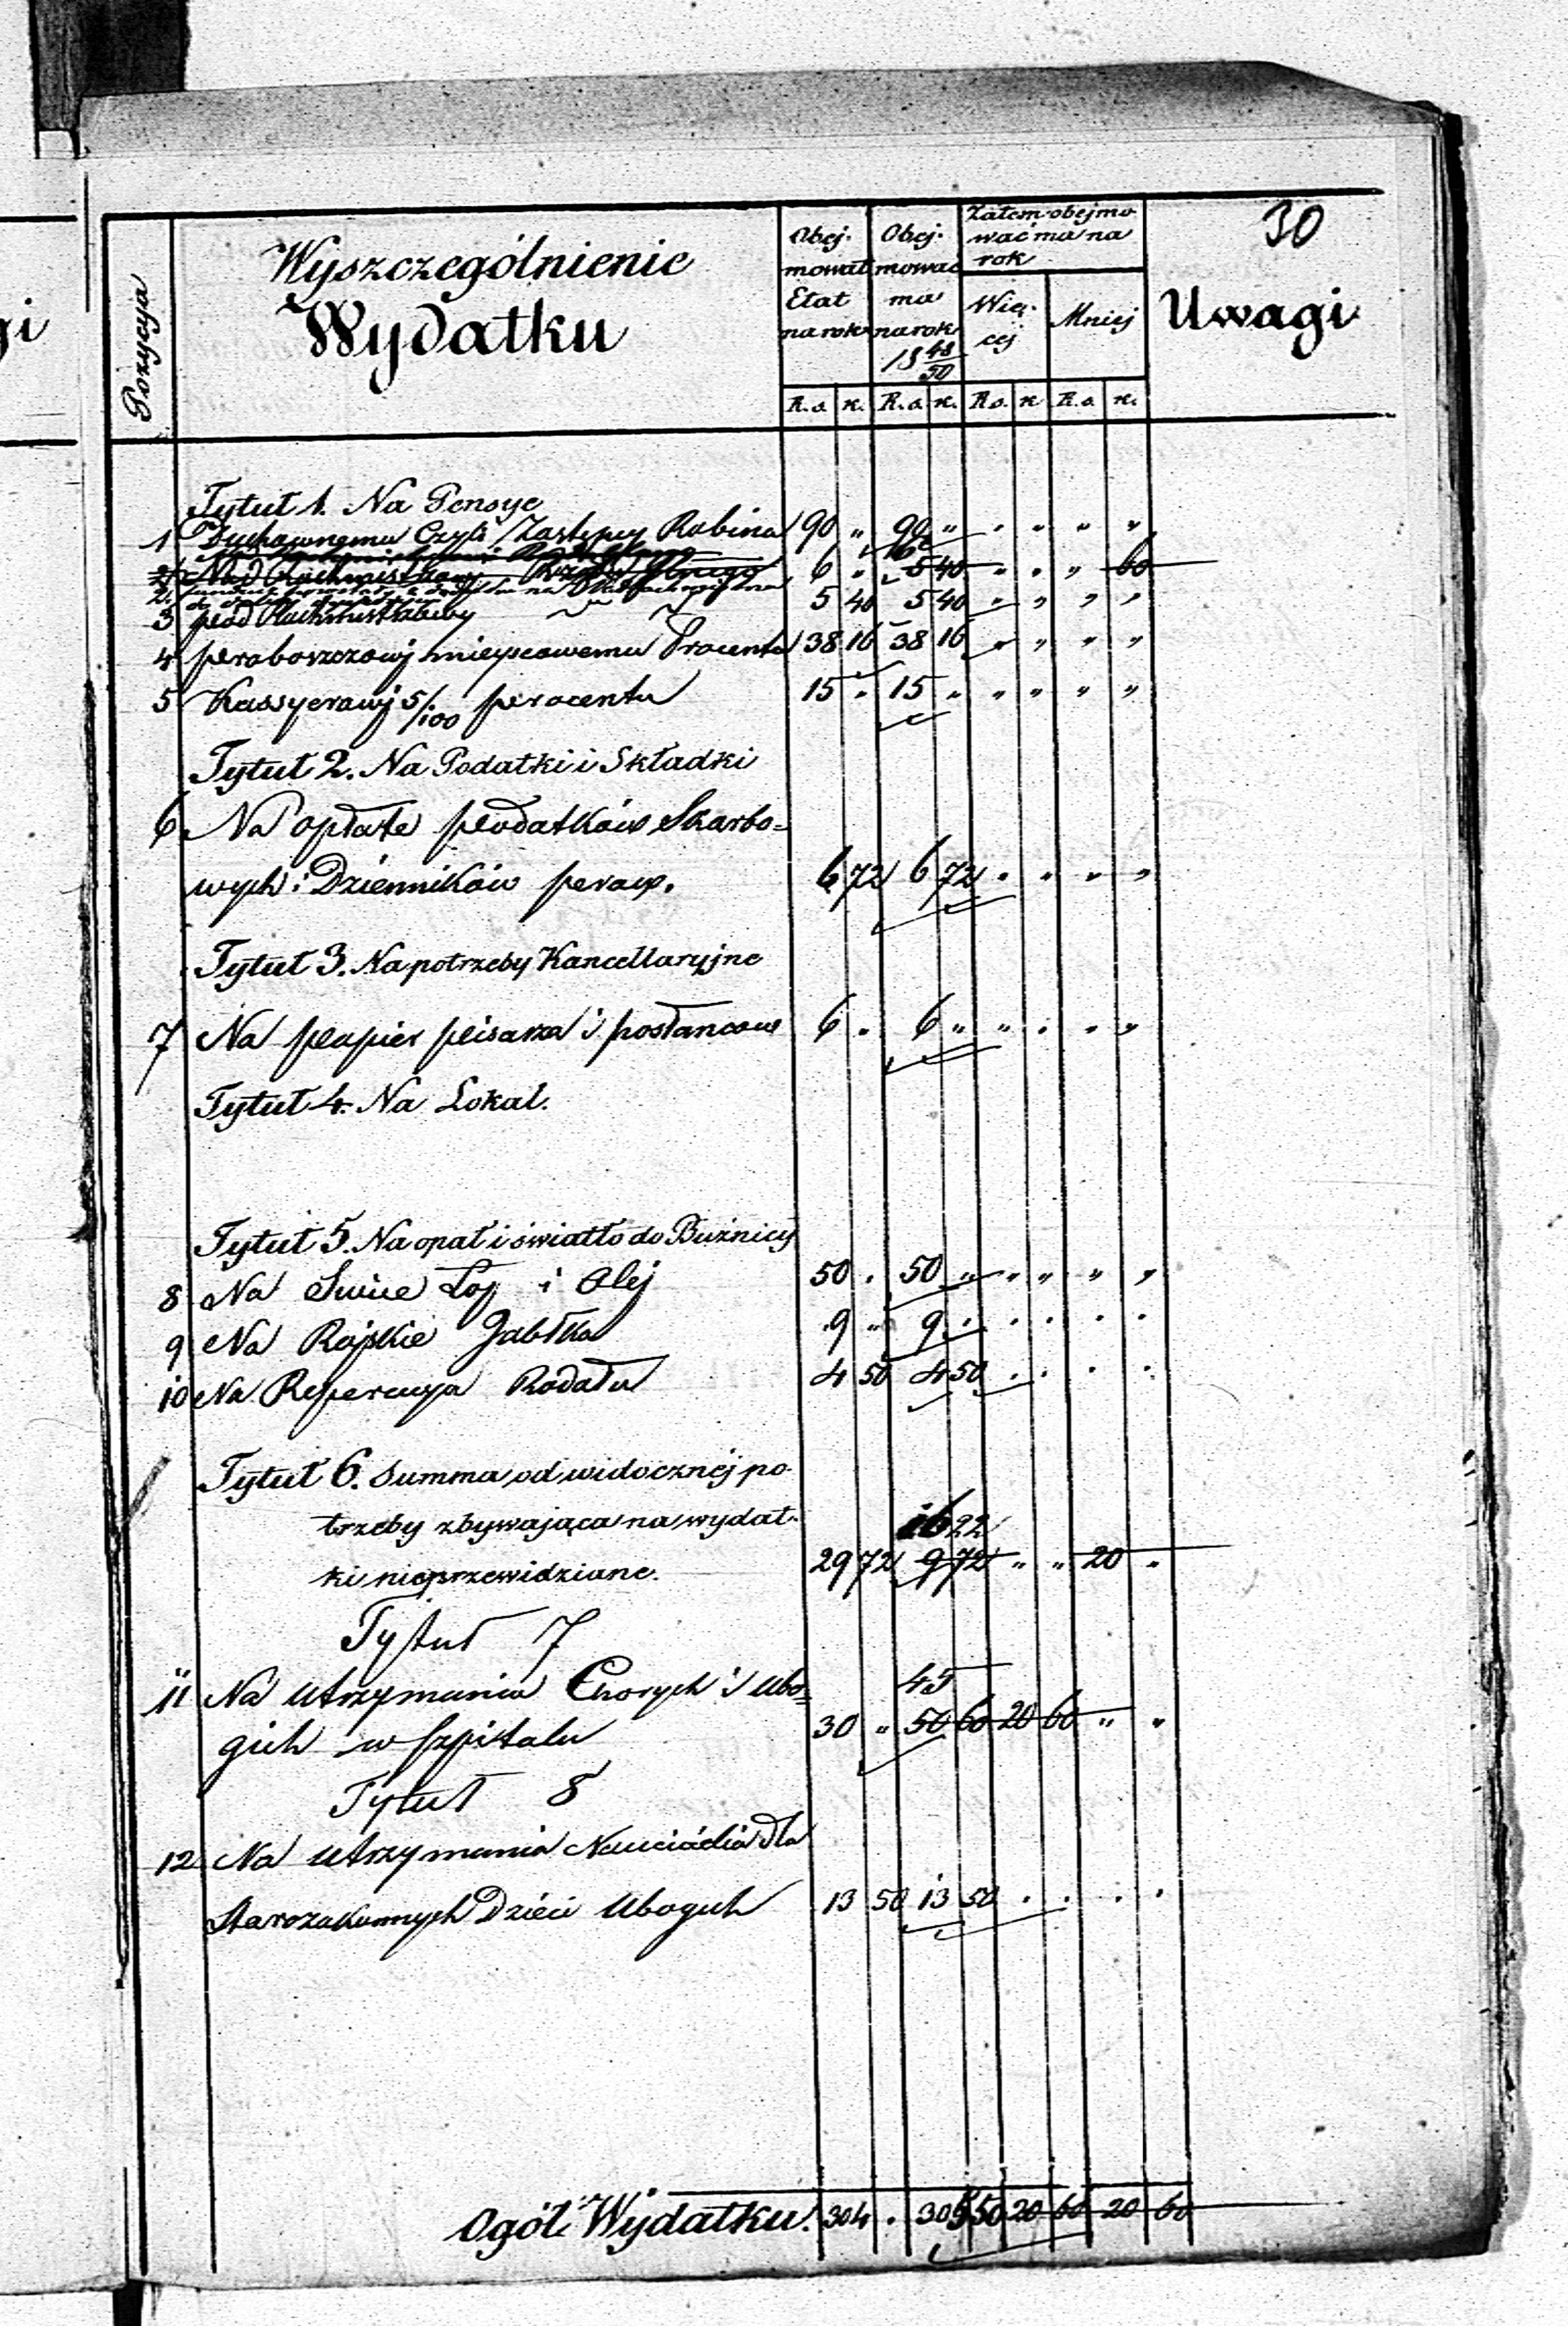 gi
30
Pozycya
Wyszczególnienie
Wydatku
Obej-
mował
Etat
na rok
Obej-
mować
ma
na rok
18 48/50
Zatem obejmo
wać ma na
rok
Wię-
cej
Mniej
Uwagi
R.s. k. R.s. k. R.s. k R.s. k.
Tytuł 1. Na Pensye
1 Duchownemu Czyli Zastępcy Rabina 90 „ 90 „ „ „ „ „
2 6 „ 5 40 „ „ „ 60
3 pod 5 40 5 40 „ „ „ „
4 proboszczowj mieyscowemu Procentu 38 16 38 16 „ „ „ „
5 Kassyerowj 5/100 procentu 15 „ 15 „ „ „ „ „
Tytuł 2. Na Podatki i Składki
6 Na opłatę podatków Skarbo=
wych i Dzienników praw. 6 72 6 72 „ „ „ „
Tytuł 3. Na potrzeby Kancellaryjne
7 Na papier pisarza i posłańcow 6 „ 6 „ „ „ „ „
Tytuł 4. Na Lokal.
Tytuł 5. Na opał i światło do Bużnicy
8 Na Swice Łoj i Olej 50 „ 50 „ „ „ „ „
9 Na Rajskie Jabłka 9 „ 9 „ „ „ „ „
10 Na Repercuya Rodału 4 50 4 50 „ „ „ „
Tytuł 6. Summa od widocznéj po-
trzeby zbywająca na wydat- 16 22
ki nieprzewidziane. 29 72 9 72 „ „ 20 „
Tytuł 7
11 Na Utrzymania Chorych i Ubo= 45
gich w Szpitalu 30 „ 50 60 20 60 „ „
Tytuł 8
12 Na Utrzymania Nauciciela dla
Starozakonnych Dzieci Ubogich 13 50 13 50 „ „ „ „
Ogół Wydatku. 304 „ 305 50 20 60 20 60